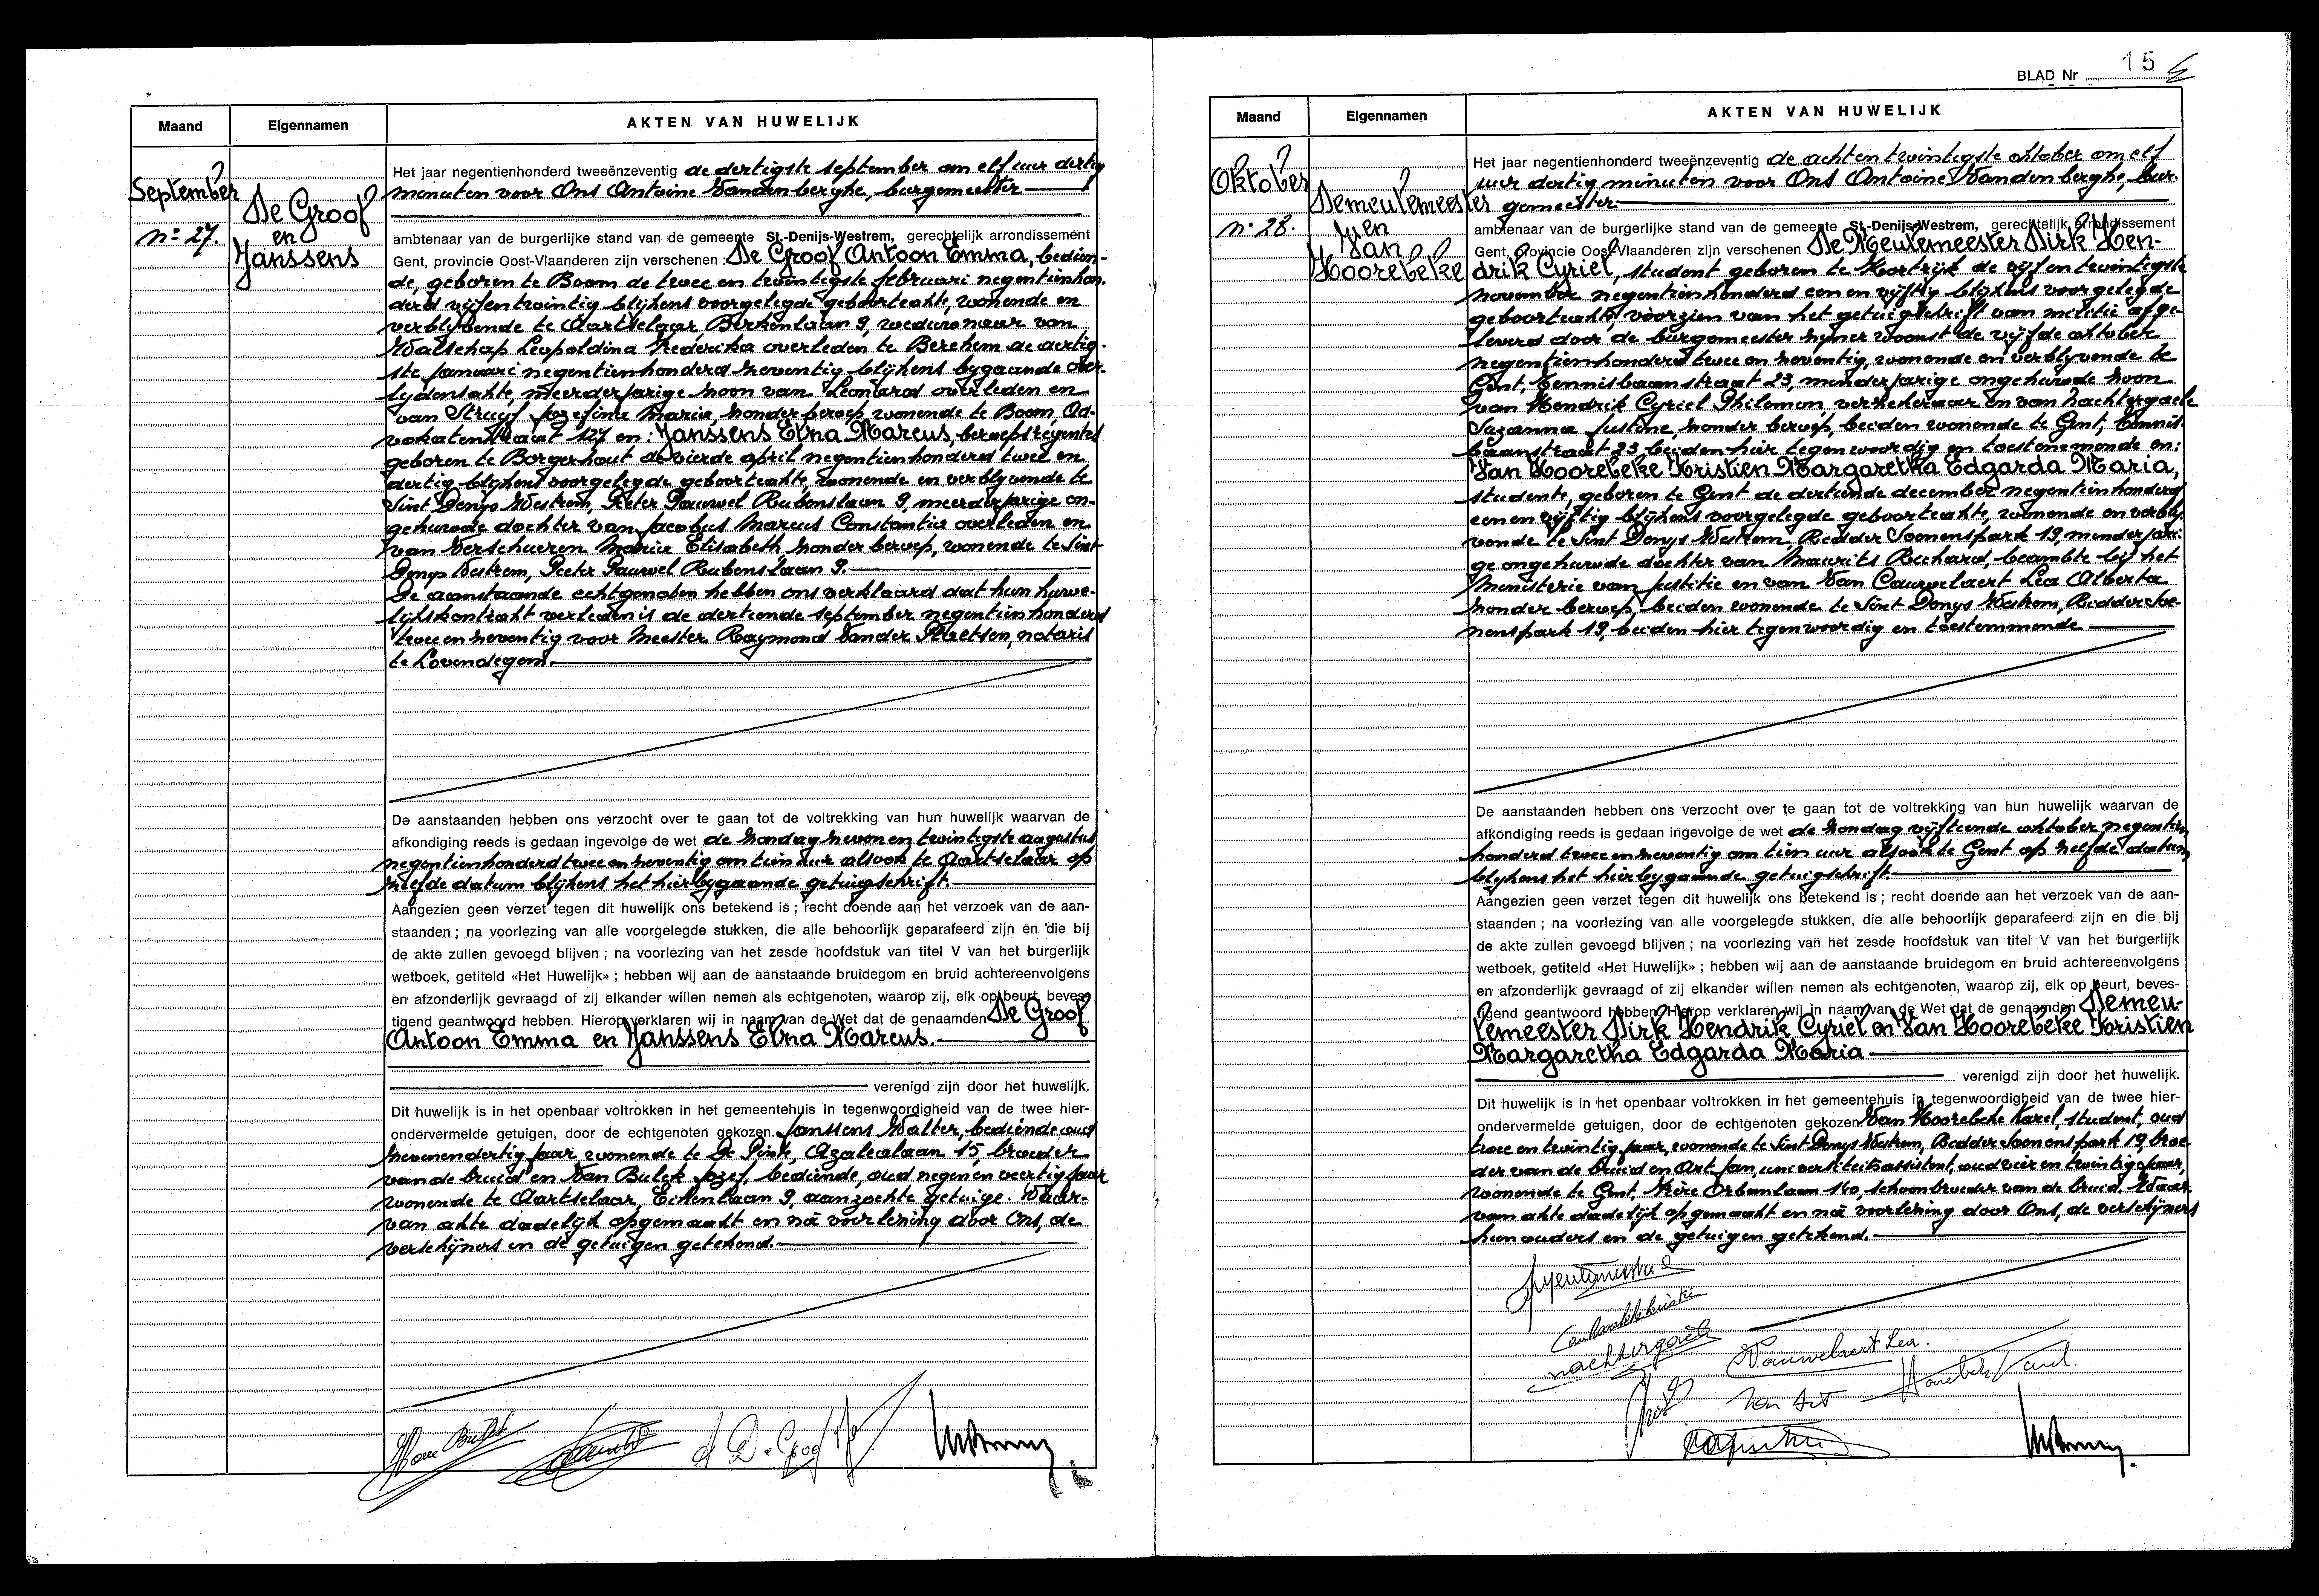 Maand
Eigennamen
AKTEN VAN HUWELIJK
September
nº 27.
De Groof
en
Janssens
Het jaar negentienhonderd tweeënzeventig de dertigste september om elf uur dertig
minuten voor Ons Antoine Vandenberghe, burgemeester
ambtenaar van de burgerlijke stand van de gemeente St.-Denijs-Westrem, gerechtelijk arrondissement
Gent, provincie Oost-Vlaanderen zijn verschenen : De Groof Antoon Emma, bedien-
de, geboren te Boom de twee en twintigste februari negentienhon-
derd vijfentwintig blijkens voorgelegde geboorteakte, wonende en
verblijvende te Aartselaar Berkenlaan 9, weduwnaar van
Walschap Leopoldina Frederika overleden te Berchem de dertig-
ste januari negentienhonderd zeventig blijkens bygaande over-
lydensakte, meerderjarige zoon van Leonard overleden en
van Struyf Jozefina Maria zonder beroep wonende te Boom, Ad-
vokatenstraat 127 en : Janssens Elna Marcus, beroepsregentes
geboren te Borgerhout de vierde april negentienhonderd twee en
dertig blijkens voorgelegde geboorteakte, wonende en verblyvende te
Sint Denys Westrem, Pieter Pauwel Rubenslaan 9, meerderjarige on-
gehuwde dochter van Jacobus Marcus Constantius overleden en
van Verschueren Maria Elisabeth zonder beroep, wonende te Sint
Denys Westrem, Pieter Pauwel Rubenslaan 9.
De aanstaande echtgenoten hebben ons verklaard dat hun huwe-
lijkskontrakt verleden is de dertiende september negentienhonderd
twee en zeventig voor Meester Raymond Vander Plaetsen, notaris
te Lovendegem.
De aanstaanden hebben ons verzocht over te gaan tot de voltrekking van hun huwelijk waarvan de
afkondiging reeds is gedaan ingevolge de wet de zondag zeven en twintigste augustus
negentienhonderd twee en zeventig om tien uur alsook te Aartselaar op
zelfde datum blijkens het hierbygaande getuigschrift.
Aangezien geen verzet tegen dit huwelijk ons betekend is ; recht doende aan het verzoek van de aan-
staanden ; na voorlezing van alle voorgelegde stukken, die alle behoorlijk geparafeerd zijn en die bij
de akte zullen gevoegd blijven ; na voorlezing van het zesde hoofdstuk van titel V van het burgerlijk
wetboek, getiteld «Het Huwelijk» ; hebben wij aan de aanstaande bruidegom en bruid achtereenvolgens
en afzonderlijk gevraagd of zij elkander willen nemen als echtgenoten, waarop zij, elk op beurt, beves-
tigend geantwoord hebben. Hierop verklaren wij in naam van de Wet dat de genaamden De Groof
Antoon Emma en Janssens Elna Marcus.
verenigd zijn door het huwelijk.
Dit huwelijk is in het openbaar voltrokken in het gemeentehuis in tegenwoordigheid van de twee hier-
ondervermelde getuigen, door de echtgenoten gekozen. Janssens Walter, bediende oud
zevenendertig jaar wonende te De Pinte, Azalealaan 15, broeder
van de bruid en Van Bulck Jozef, bediende, oud negen en veertig jaar
wonende te Aartselaar, Eikenlaan 9, aanzochte getuige. Waar-
van akte dadelijk opgemaakt en nà voorlezing door Ons, de
verschijners en de getuigen getekend.
A De Groof
BLAD Nr 15
Maand
Eigennamen
AKTEN VAN HUWELIJK
Oktober
nº 28.
Demeulemeester
en
Van
Hoorebeke
Het jaar negentienhonderd tweeënzeventig de achten twintigste oktober om elf
uur dertig minuten voor Ons Antoine Vandenberghe, bur-
gemeester
ambtenaar van de burgerlijke stand van de gemeente St-Denijs-Westrem, gerechtelijk arrondissement
Gent, provincie Oost-Vlaanderen zijn verschenen De Meulemeester Dirk Hen-
drik Cyriel, student geboren te Kortrijk de vijf en twintigste
november negentienhonderd een en vijftig blijkens voorgelegde
geboorteakte, voorzien van het getuigschrift van militie afge-
leverd door de burgemeester zijner woonst de vijfde oktober
negentienhonderd twee en zeventig, wonende en verblyvende te
Gent, Kennisbaanstraat 23, minderjarige ongehuwde zoon
van Hendrik Cyriel Philemon, verzekeraar en van Nachtergaele
Suzanna Justine, zonder beroep, beiden wonende te Gent, Kennis-
baanstraat 23, beiden hier tegenwoordig en toestemmende en:
Van Hoorebeke Kristien Margaretha Edgarda Maria,
studente, geboren te Gent de dertiende december negentienhonderd
een en vijftig blijkens voorgelegde geboorteakte, wonende en verbly-
vende te Sint Denys Westrem, Ridder Soenenspark 19, minderjari-
ge ongehuwde dochter van Maurits Richard, beambte bij het
Ministerie van Justitie en van Van Cauwelaert Lea Alberta
zonder beroep, beiden wonende te Sint Denys Westrem, Ridder Soe-
nenspark 19, beiden hier tegenwoordig en toestemmende
De aanstaanden hebben ons verzocht over te gaan tot de voltrekking van hun huwelijk waarvan de
afkondiging reeds is gedaan ingevolge de wet de zondag vijftiende oktober negentien
honderd twee en zeventig om tien uur alsook te Gent op zelfde datum
blijkens het hierbygaande getuigschrift.
Aangezien geen verzet tegen dit huwelijk ons betekend is ; recht doende aan het verzoek van de aan-
staanden ; na voorlezing van alle voorgelegde stukken, die alle behoorlijk geparafeerd zijn en die bij
de akte zullen gevoegd blijven ; na voorlezing van het zesde hoofdstuk van titel V van het burgerlijk
wetboek, getiteld «Het Huwelijk» ; hebben wij aan de aanstaande bruidegom en bruid achtereenvolgens
en afzonderlijk gevraagd of zij elkander willen nemen als echtgenoten, waarop zij, elk op beurt, beves-
tigend geantwoord hebben. Hierop verklaren wij in naam van de Wet dat de genaamden Demeu-
lemeester Dirk Hendrik Cyriel en Van Hoorebeke Kristien
Margaretha Edgarda Maria
verenigd zijn door het huwelijk.
Dit huwelijk is in het openbaar voltrokken in het gemeentehuis in tegenwoordigheid van de twee hier-
ondervermelde getuigen, door de echtgenoten gekozen. Van Hoorebeke Karel, student, oud
twee en twintig jaar, wonende te Sint Denys Westrem, Ridder Soenenspark 19, broe-
der van de bruid en Art Jan, universiteitsassistent, oud vier en twintig jaar,
wonende te Gent, Frère Orbanlaan 140, schoonbroeder van de bruid. Waar-
van akte dadelijk opgemaakt en nà voorlezing door Ons, de verschijners
hun ouders en de getuigen getekend.
Nachtergaele
VCauwelaert Lea.